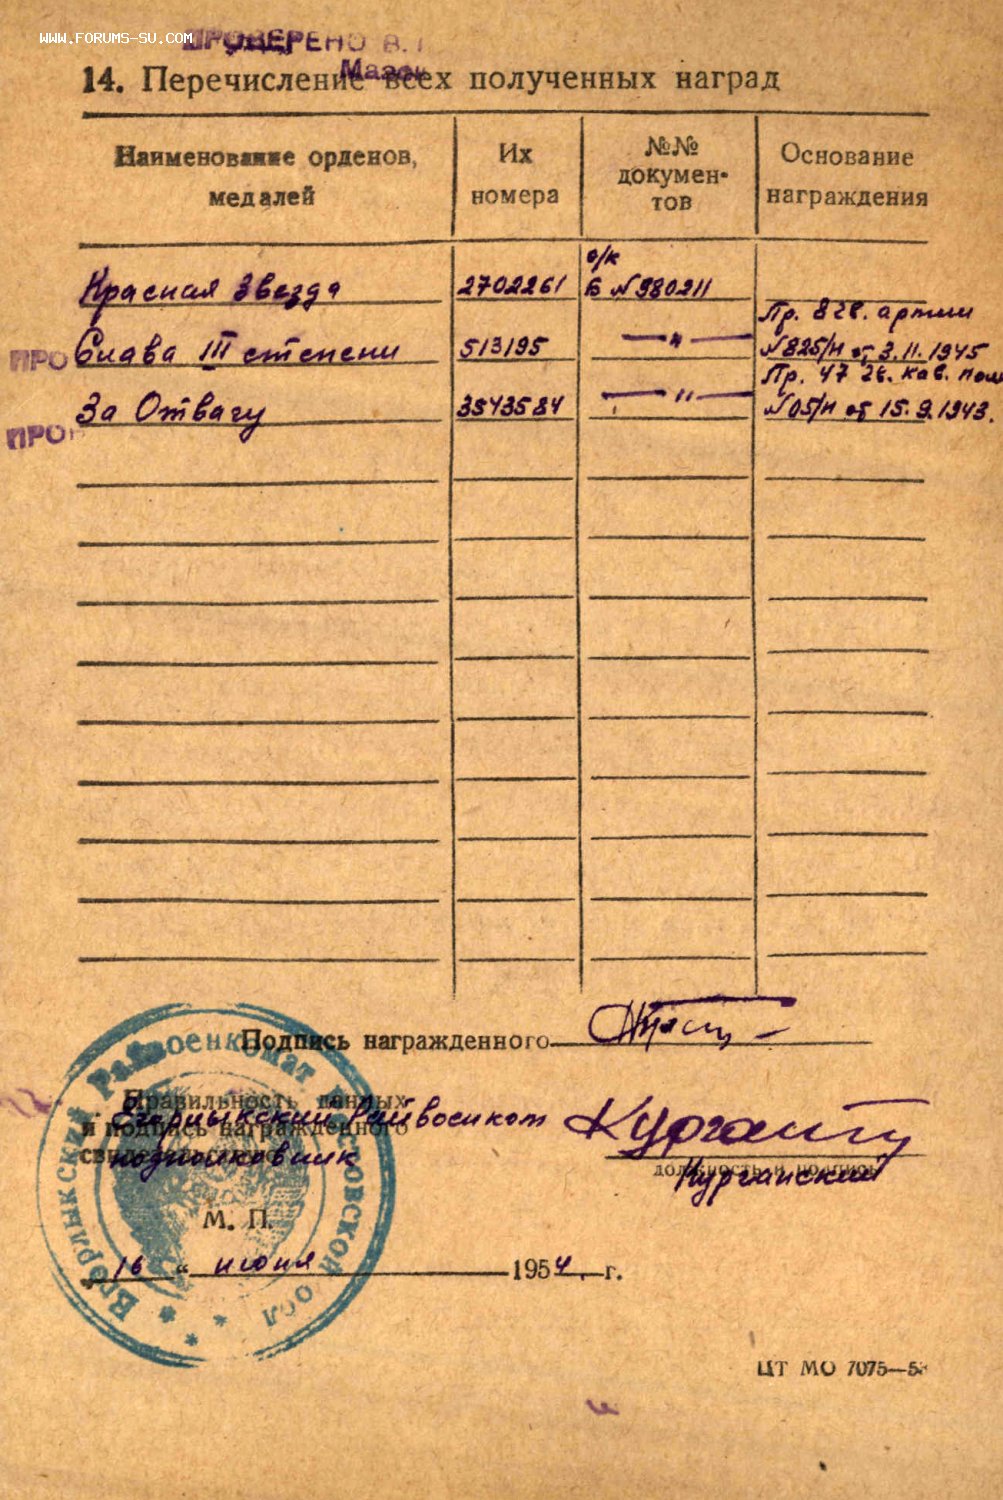 WWW.FORUMS-SU.COM
ПРОВЕРЕНО В.
14. Перечисление всех полученных наград
Наименование орденов, медалей
Их номера
№№ докумен-тов
Основание награждения
о/к
Красная Звезда 2702261 Б №980211
Пр. 8 гв. армии
ПРО Слава III степени 513195 —"— №825/н от 3.11.1945
Пр. 47 гв. кав. пол
За Отвагу 3543584 —"— №05/н от 15.9.1943.
ПРОВ
Подпись награжденного
Правильность данных
Егорлыкский Райвоенком
и подпись награжденного
свидетельствую
подполковник
должность и подпись
Курганский
М. П.
16 " июня 1954 г.
Егорлыкский Райвоенкомат Ростовской обл
ЦТ МО 7075—5